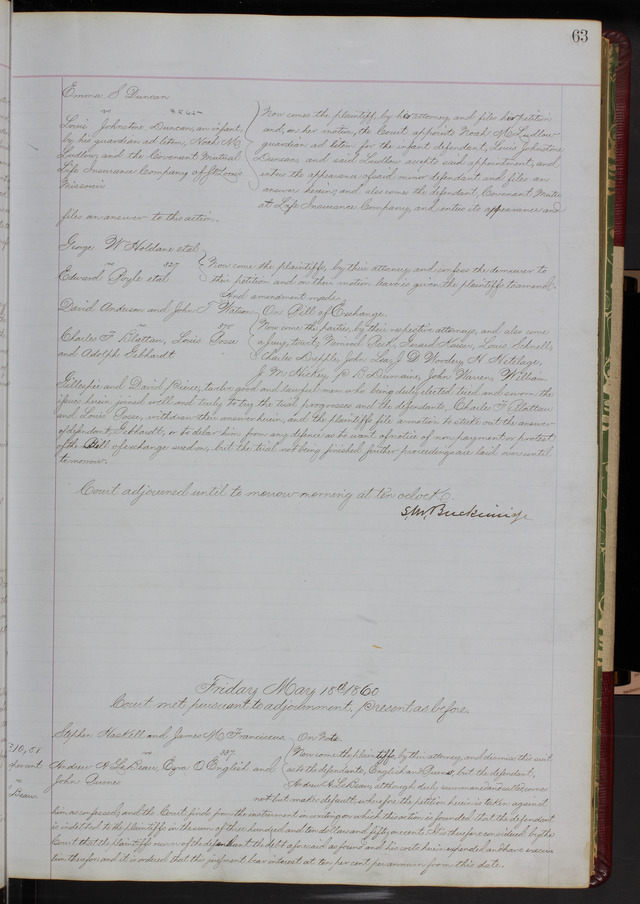 63
Emma S Duncan
vs
Louis Johnstone Duncan, an infant
by his guardian ad litem, Noah M
Ludlow, and the Covenant Mutual
Life Insurance Company of St Louis
Missouri
Now comes the plaintiff, by her attorney and files her petition
and, on her motion, the Court appoints Noah M Ludlow
guardian ad litem for the infant defendant, Louis Johnstone
Duncan, and said Ludlow accepts said appointment, and
enters the appearance of said minor defendant and files an
answer herein, and also comes the defendant, Covenant Mutu-
al Life Insurance Company, and enters its appearance and
files an answer to this action.
George W Holdane et al
vs 827
Edward Boyle et al
Now come the plaintiffs, by their attorney, and confess the demurrer to
their petition and on their motion leave is given the plaintiffs to amend.
And amendment made
David Anderson and John T Watson
vs
Charles F Blattau, Louis Posse
and Adolph Gebhardt
On Bill of Exchange.
Now come the parties, by their respective attorneys, and also come
a jury, towit, Gerard Louis Schnell,
Charles Dapple, John Lea, J D Wordsey, H Netelage,
J M Hickey, P B Dumaine, John Warren, William
Gillespie and David Pierce, twelve good and lawful men who being duly elected tried and sworn the
issues herein joined well and truly to try the trial progresses and the defendants, Charles F Blattau
and Louis Posse, withdraw their answer herein, and the plaintiffs file a motion to strike out the answer
of defendant, Gebhardt, or to debar him from any defence as to want of notice of non payment or protest
of the Bill of exchange sued on, but the trial not being finished further proceedings are laid over until
tomorrow.
Court adjourned until to morrow morning at ten oclock.
S.M. Buckinridge
Friday May 18th 1860
Court met pursuant to adjournment, present as before.
Stephen Haskell and James M Franciscus
vs 397
Andrew H LeBeau, Ezra O English and
John Quinn
On Note
Now come the plaintiffs, by their attorney, and dismiss this suit
as to the defendants, English and Quinn, but the defendant,
Andrew H LeBeau, although duly summoned and called comes
not but makes default, wherefore the petition herein is taken against
him as confessed; and the Court finds from the instrument in writing on which this action is founded, that the defendant
is indebted to the plaintiffs in the sum of three hundred and ten dollars and fifty one cents. It is therefore considered by the
Court that the plaintiffs recover of the defendant the debt aforesaid as found and his costs herein expended and have execu-
tion therefor, and it is ordered that this judgment bear interest at ten per cent per annum from this date.
310,51
per cent
Beau